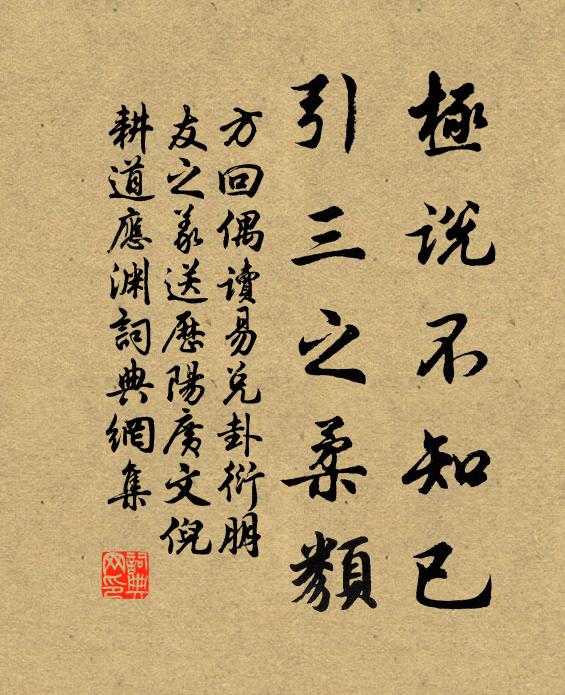 極說不知已
引三之柔類
方回偶讀易兌卦衍朋
友之義送歷陽廣文倪
耕道應淵詞典網集
詞典网印